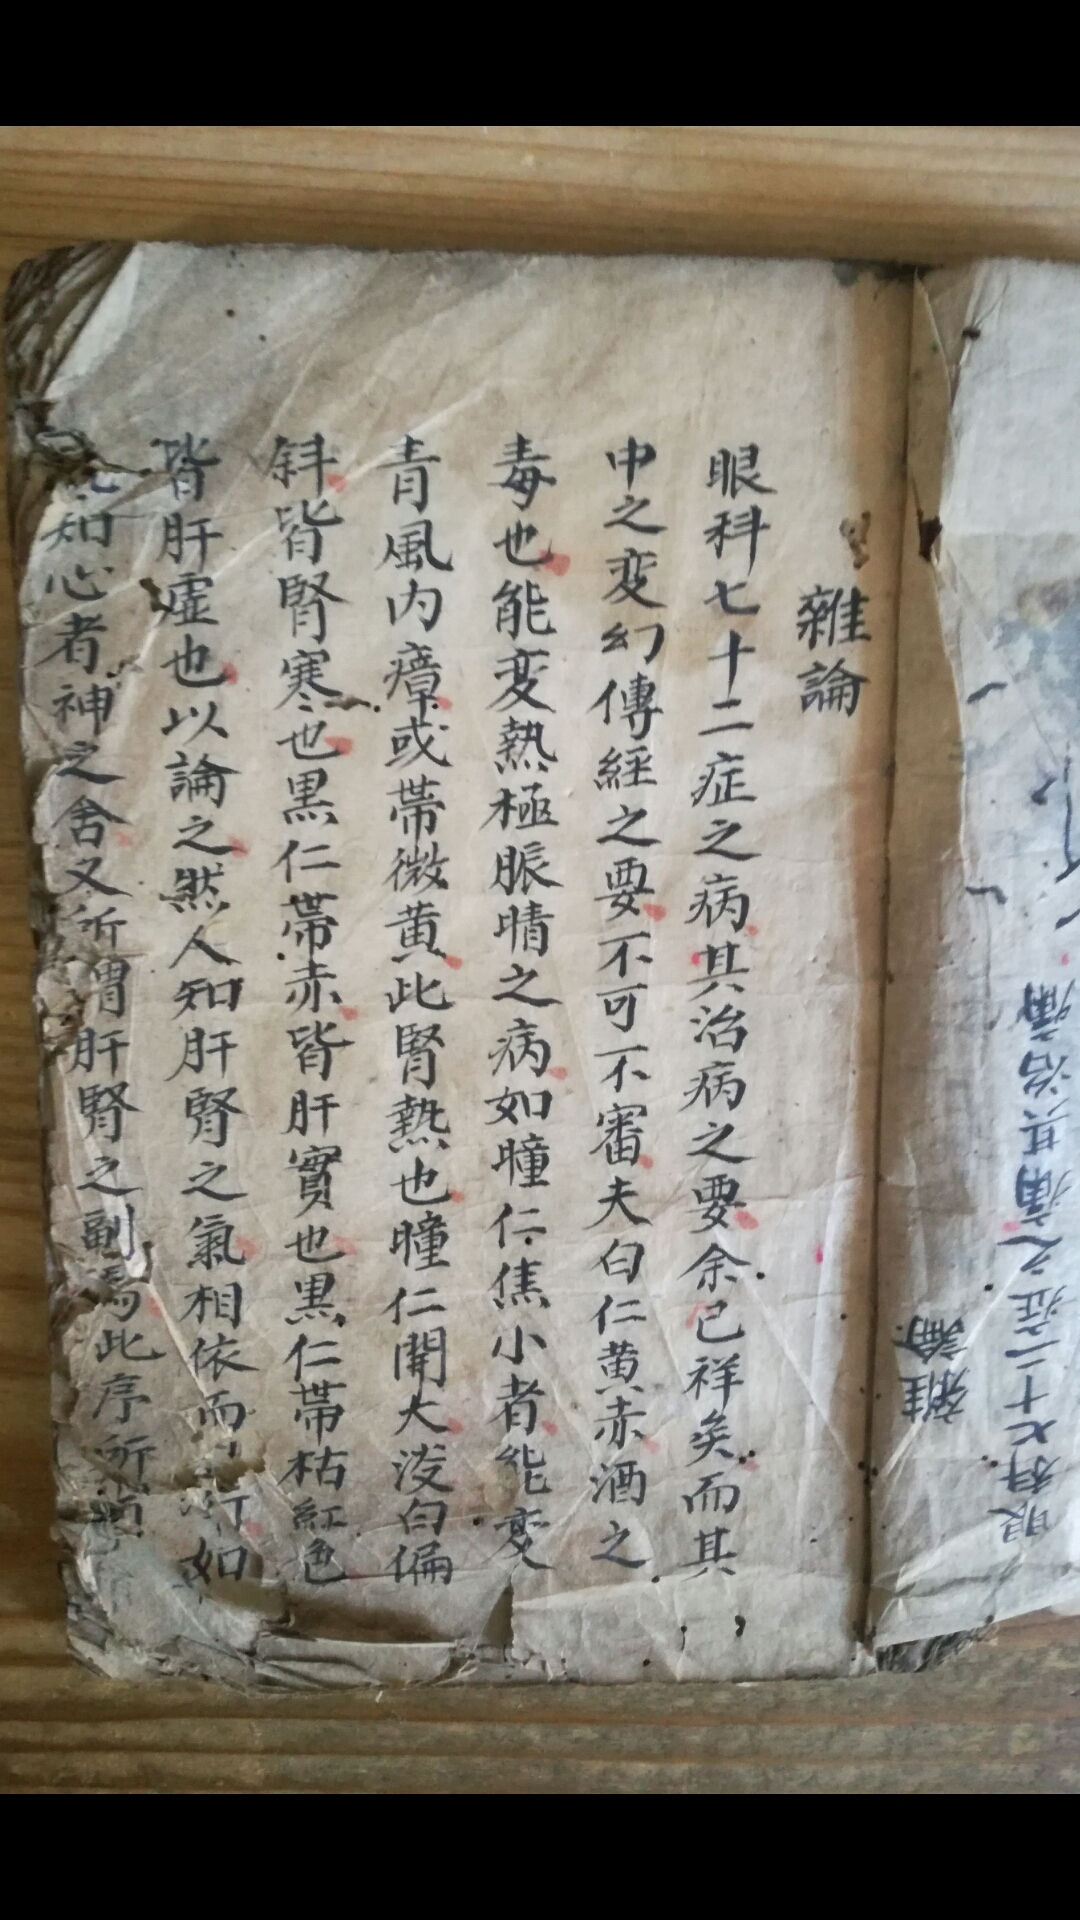 雜論
眼科七十二症之病其治病之要余已祥矣而其
中之变幻傳經之要不可不審夫白仁黄赤酒之
毒也能变熱極脤晴之病如瞳仁焦小者能变
青風内瘴或帶微黄此腎熱也瞳仁開大淩白偏
斜皆腎寒也黒仁帶赤皆肝實也黒仁帶枯紅色
皆肝虚也以論之然人知肝腎之氣相依而如
知心者神之舍又所謂肝腎之副焉此序所
雜論
眼科七十二症之病其治病